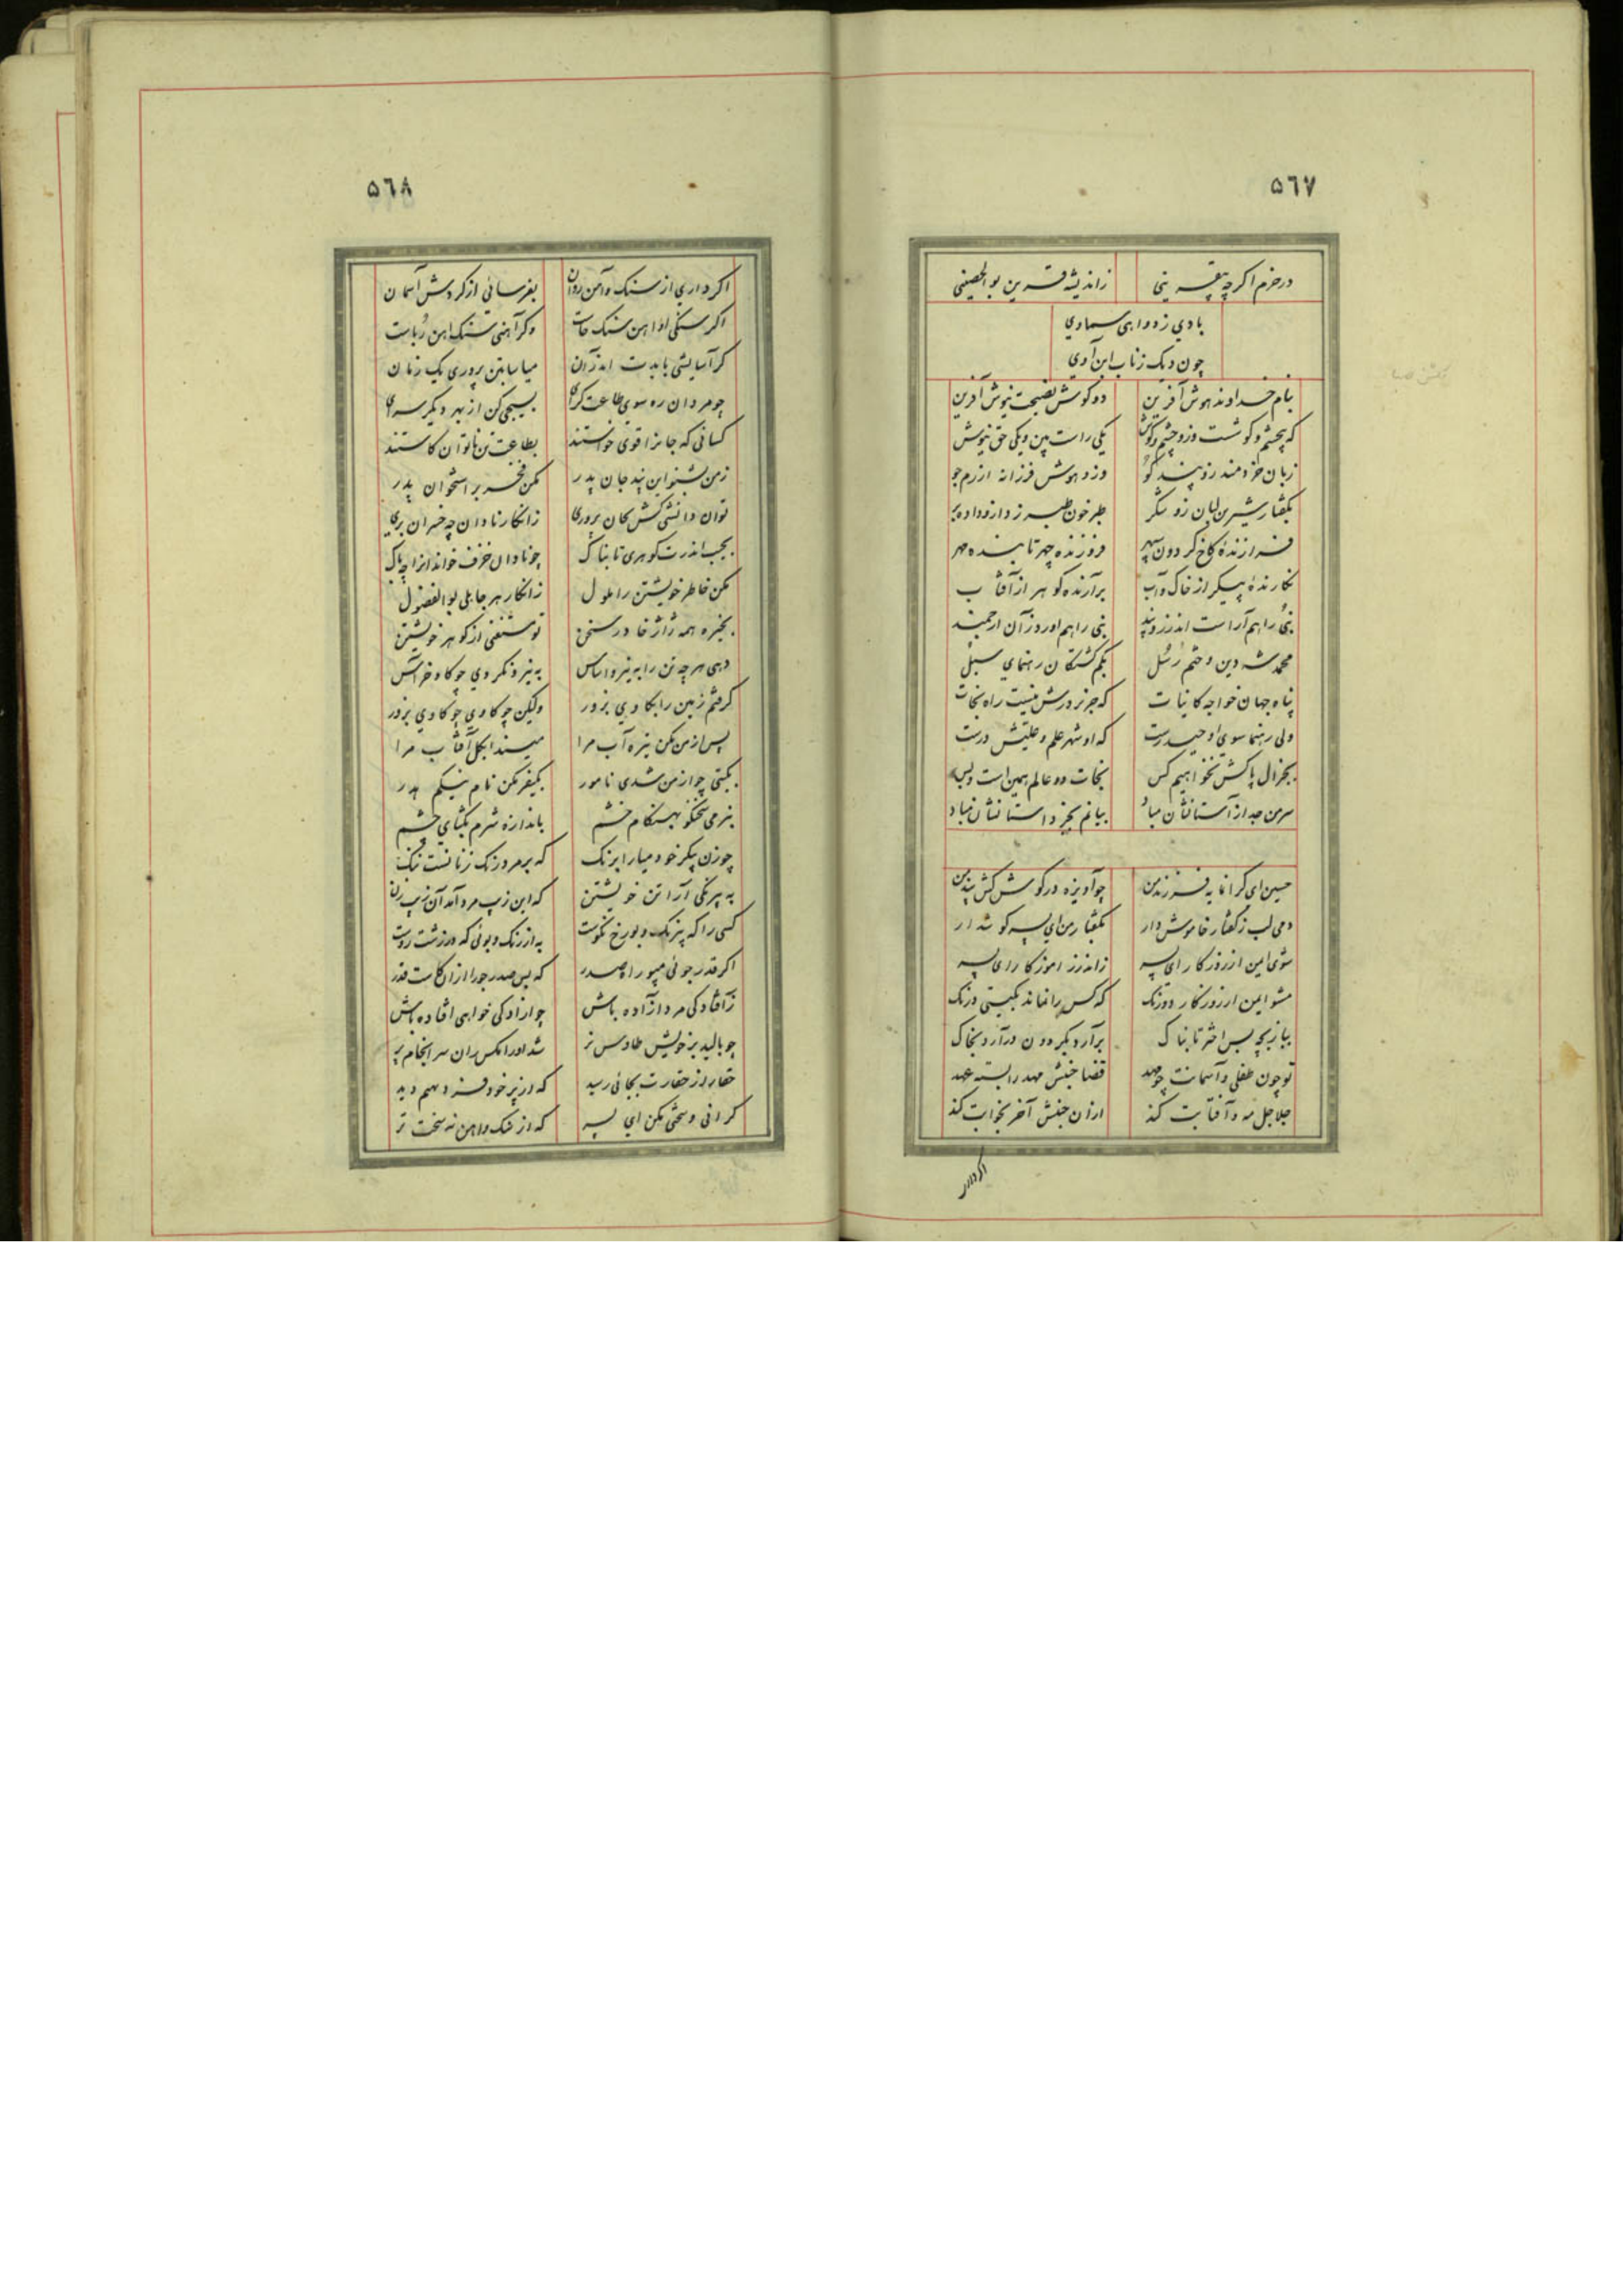 ۵٦٧
درخرم اکرچه بیقرینی زاندیشه قرین بوالحصینی
بادی زدواهی سماوی
چون دیک زناب ابن آوی
بنام خداوند هوش آفرین دو کوش نصیحت نیوش آفرین
که بیچشم و کوشست وزو چشم و کوش یکی راست بین و یکی حق نیوش
زبان خردمند زو پند کو وزو هوش فرزانه ازرم جو
بکفتار شیرین لبان زو شکر طبرخون طبرزد ازو داده بر
فرازنده کاخ کردون سپهر فروزنده چهر تابنده مهر
نکارنده پیکر از خاک و آب برآرنده کوهر از آفتاب
نبی را هم آراست اندرز و پند نبی را هم اورد زآن ارجمند
محمد شه دین و ختم رسل بکم کشتکان رهنمای سبل
پناه جهان خواجه کاینات که جز بر درش نیست راه نجات
ولی رهنما سوی او حیدرست که او شهر علم و علیش درست
بجز ال پاکش نخواهیم کس نجات دو عالم همین است و بس
سر من جدا از آستانشان مباد بیانم بجز داستانشان مباد
حسین ای کرانمایه فرزند من چو آویزه در کوش کش پند من
دمی لب ز کفتار خاموش دار بکفتار من ای پسر کوش دار
شوی ایمن از روزکار ای پسر ز اندرز اموزکار ای پسر
مشو ایمن از روزکار دورنک که کس را نماند بکیتی درنک
ببازیچه بس اختر تابناک برآرد بکردون درآرد بخاک
تو چون طفلی و آسمانت چو مهد قضا جنبش مهد را بسته عهد
جلاجل مه و آفتابت کند ازان جنبش آخر بخوابت کند
اکرداری
۵٦٨
اکر داری از سنک و آهن روان بفرسائی از کردش آسمان
اکر سنکی او اهن سنک خاست وکر آهنی سنک اهن رباست
کر آسایشی بایدت اندر آن میاسا بتن پروری یک زمان
چو مردان ره سوی طاعت کرای بسیجی کن از بهر دیکر سرای
کسانی که جانرا قوی خواستند بطاعت تن ناتوان کاستند
ز من بشنو این پند جان پدر مکن فخر بر استخوان پدر
توان دانشی کش کان پروری ز انکار نادان چه خسران بری
بجیب اندرت کوهری تابناک چو نادان خزف خواند انرا چه باک
مکن خاطر خویشتن را ملول ز انکار هر جاهلی بوالفضول
بخیره همه ژاژ خا در سخن تو مستغنی از کوهر خویشتن
دهی هرچه تن را به نیرو اساس به نیرو نکردی چو کاو خراس
کرفتم زمین را بکاوی بزور ولیکن چو کاوی چو کاوی بزور
پس از من مکن تیره آب مرا میندا بکل آفتاب مرا
بکیتی چو از من شدی نامور بکیفر مکن نام نیکم هدر
بنرمی سخنکو بهنکام خشم باندازه شرم بکشای چشم
چو زن پیکر خود میارا برنک که بر مرد رنک زنانست ننک
به پیرنکی آراتن خویشتن که این زیب مرد آمد آن زیب زن
کسی را که بیرنک و بو رخ نکوست به از رنک و بوئی که در زشت روست
اکر قدر جوئی مپو راه صدر که بس صدر جو را ازان کاست قدر
ز آفتادکی مرد آزاده باش چو ازادکی خواهی افتاده باش
چو بالید بر خویش طاوس نر شد اورا مکس ران سرانجام پر
حقار از حقارت بجائی رسید که از پر خود فر دیهیم دید
کرانی و سختی مکن ای پسر که از سنک و اهن نه سخت تر